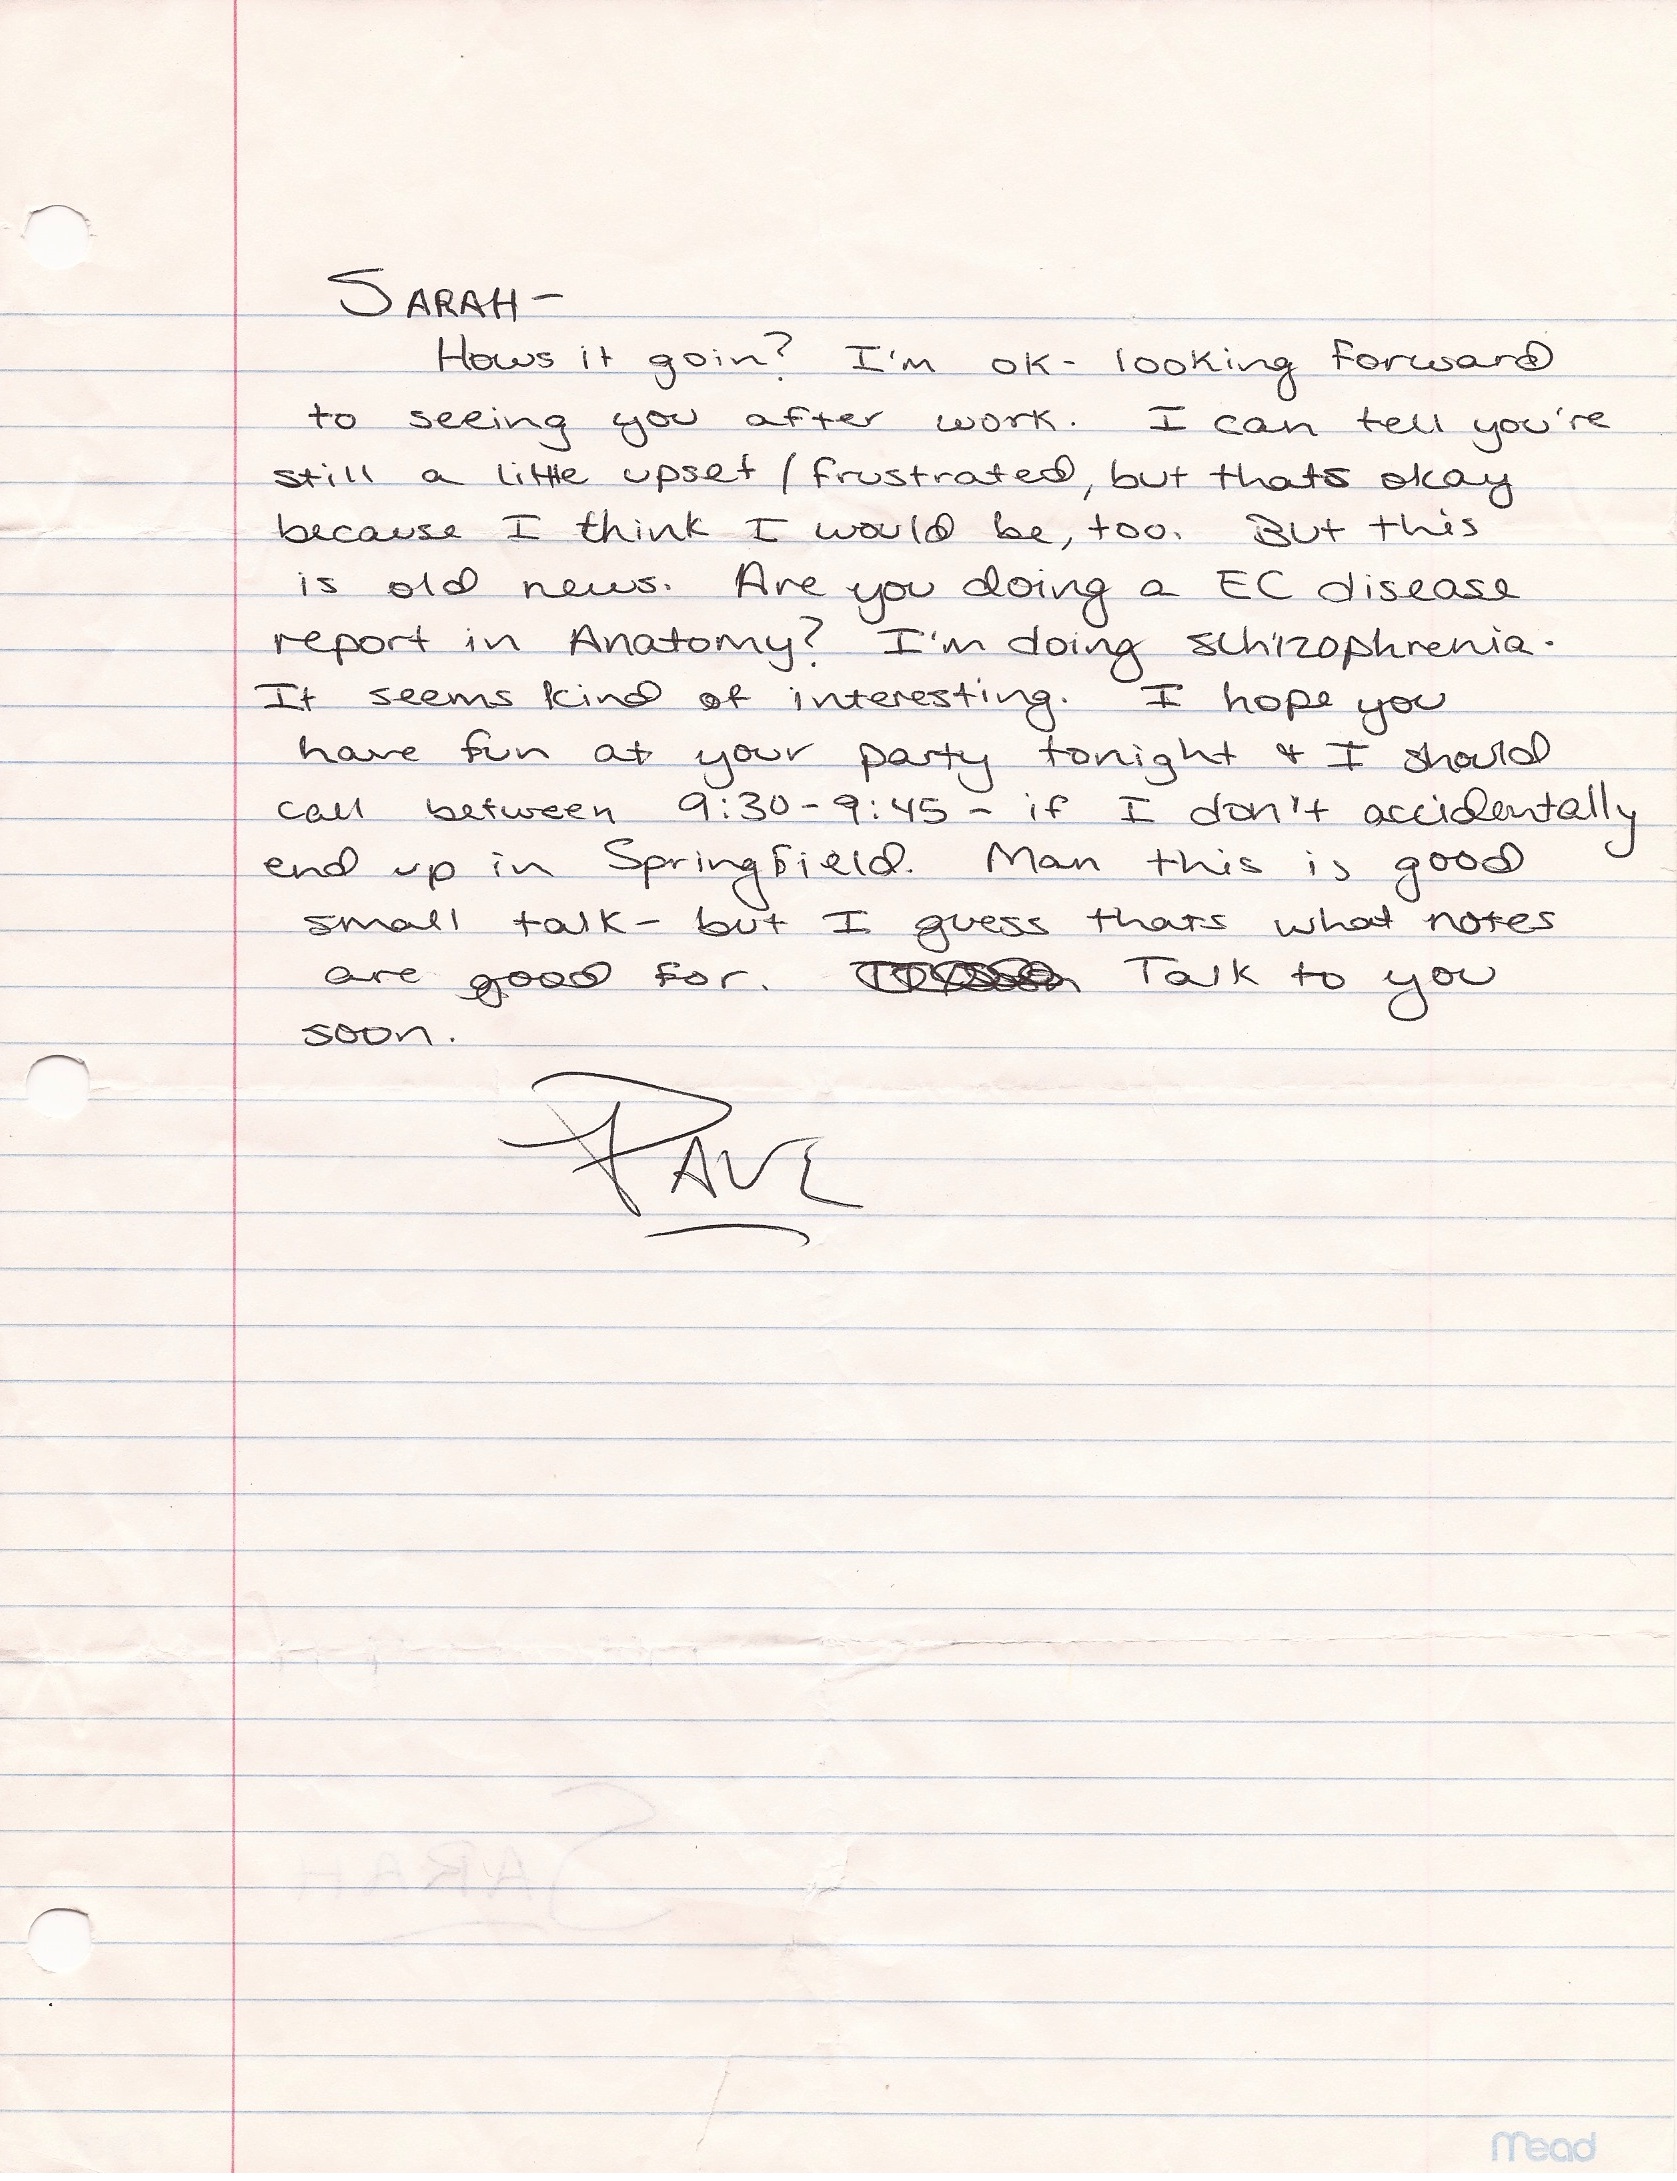 SARAH-
Hows it goin? I'm ok- looking forward
to seeing you after work. I can tell you're
still a little upset/frustrated, but thats okay
because I think I would be, too. But this
is old news. Are you doing a EC disease
report in Anatomy? I'm doing schizophrenia.
It seems kind of interesting. I hope you
have fun at your party tonight & I should
call between 9:30-9:45- if I don't accidentally
end up in Springfield. Man this is good
small talk- but I guess thats what notes
are good for. Talk to you
soon.
DAVE
SARAH
Mead